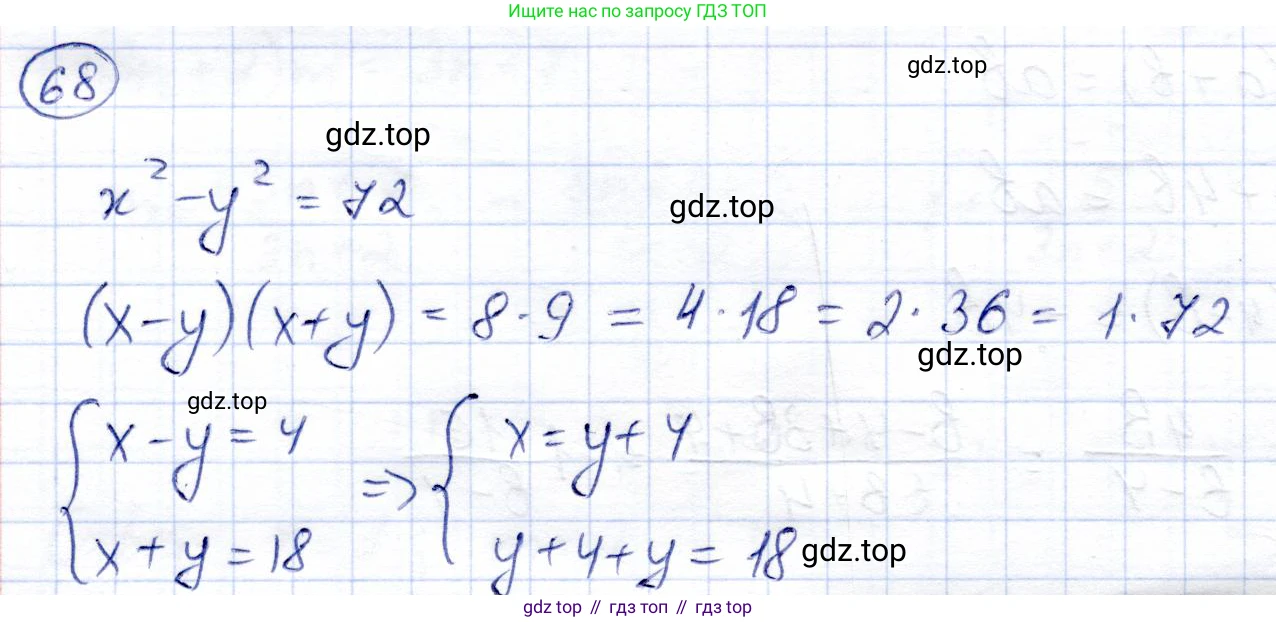 Ищите нас по запросу ГДЗ ТОП
68
gdz.top
gdz.top
x² - y² = 72
gdz.top
(x-y)(x+y) = 8·9 = 4·18 = 2·36 = 1·72
gdz.top
gdz.top
{ x - y = 4 => { x = y + 4
x + y = 18 y + 4 + y = 18
gdz.top
gdz top // гдз топ // гдз top